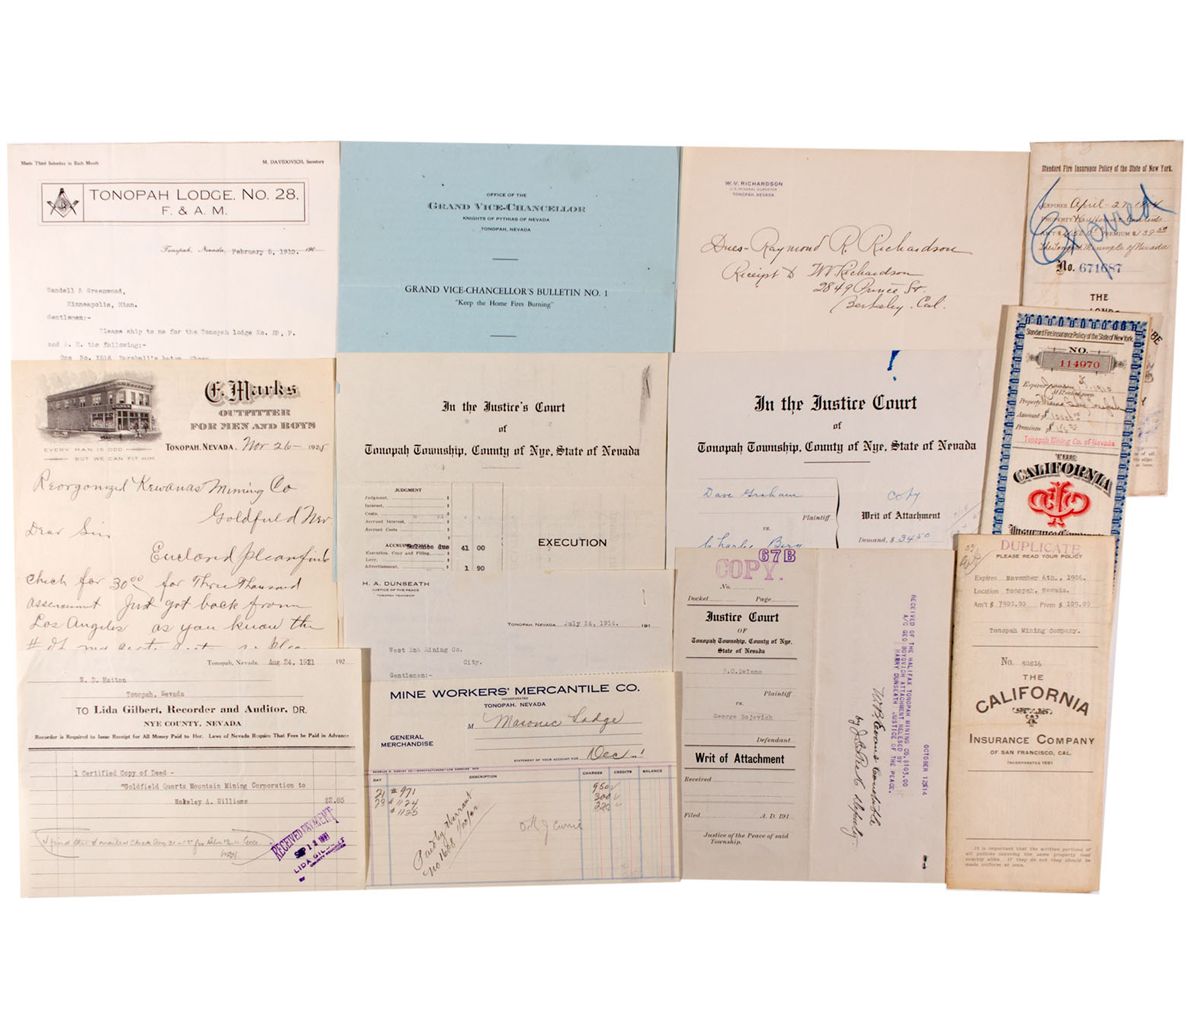 Meets Third Saturday in Each Month
M. DAVIDOVICH, Secretary
TONOPAH LODGE, NO. 28,
F. & A. M.
Tonopah, Nevada, February 5, 1910. 190
Randall & Greenwood,
Minneapolis, Minn.
Gentlemen:-
Please ship to me for the Tonopah lodge No. 28, F.
and A. M. the following:-
OFFICE OF THE
GRAND VICE-CHANCELLOR
KNIGHTS OF PYTHIAS OF NEVADA
TONOPAH, NEVADA
GRAND VICE-CHANCELLOR'S BULLETIN NO. 1
"Keep the Home Fires Burning"
W. V. RICHARDSON
U. S. MINERAL SURVEYOR
TONOPAH, NEVADA
Dues-Raymond R. Richardson
Receipt to W V Richardson
2849 Prince St.
Berkeley. Cal.
Standard Fire Insurance Policy of the State of New York.
Expired
EXPIRES April-27
PROPERTY
PREMIUM $
No. 671687
THE
E. Marks
OUTFITTER
FOR MEN AND BOYS
EVERY MAN IS ODD
BUT WE CAN FIT HIM
TONOPAH, NEVADA, Nov 26- 192
Reorgonized Kewanas Mining Co
Goldfield Nev
Dear Sir,
Enclosed pleas find
check for 30⁰⁰ for Three thousand
assessment Just got back from
Los Angeles as you know the
In the Justice's Court
of
Tonopah Township, County of Nye, State of Nevada
JUDGMENT
Judgment, $
Interest, $
Costs, $
Accrued Interest, $
Accrued Costs $
Balance due 41 00
Execution, Copy and Filing, $
Levy, $
Advertisement, $ 1 90
EXECUTION
In the Justice Court
of
Tonopah Township, County of Nye, State of Nevada
Dave Graham
Plaintiff
vs.
Charles Berg
Copy
Writ of Attachment
Demand, $ 34.50
Standard Fire Insurance Policy of the State of New York.
NO.
114970
Expires
Property
Amount $
Premium $
Tonopah Mining Co. of Nevada
THE
CALIFORNIA
INSURANCE COMPANY
H. A. DUNSEATH
JUSTICE OF THE PEACE
TONOPAH TOWNSHIP
TONOPAH, NEVADA, July 14, 1914. 191
West End Mining Co.
City.
Gentlemen:-
67B
COPY.
No.
Docket Page
Justice Court
OF
Tonopah Township, County of Nye,
State of Nevada
Plaintiff
vs.
George Bojovich
Defendant
Writ of Attachment
Received
Filed A. D. 191
Justice of the Peace of said
Township.
OCTOBER 13, 1914
RECEIVED OF THE HALIFAX TONOPAH MINING CO. $105.00
A/C GEO BOYOVICH ATTACHMENT RELEASED BY
HARRY DUNSEATH JUSTICE OF THE PEACE.
W B Evans Constable
Deputy.
DUPLICATE
PLEASE READ YOUR POLICY
Expires November 6th., 1906.
Location Tonopah, Nevada.
Am't $ 7500.00 Prem $ 105.00
Tonopah Mining Company.
No.
THE
CALIFORNIA
INSURANCE COMPANY
OF SAN FRANCISCO, CAL.
INCORPORATED 1861
It is important that the written portions of
all policies covering the same property read
exactly alike. If they do not they should be
made uniform at once.
Tonopah, Nevada, Aug 24, 1921 192
W. D. Hatton
Tonopah, Nevada
TO Lida Gilbert, Recorder and Auditor, DR.
NYE COUNTY, NEVADA
Recorder is Required to Issue Receipt for All Money Paid to Her. Laws of Nevada Require That Fees be Paid in Advance
1 Certified Copy of Deed -
"Goldfield Quartz Mountain Mining Corporation to
Wakeley A. Williams
RECEIVED PAYMENT
LIDA GILBERT
MINE WORKERS' MERCANTILE CO.
INCORPORATED
TONOPAH, NEVADA
GENERAL
MERCHANDISE
M Masonic Lodge
STATEMENT OF YOUR ACCOUNT FOR Dec.
DAY DESCRIPTION CHARGES CREDITS BALANCE
21 # 971 950
29 # 1124 300
# 1135
Paid by Warrant